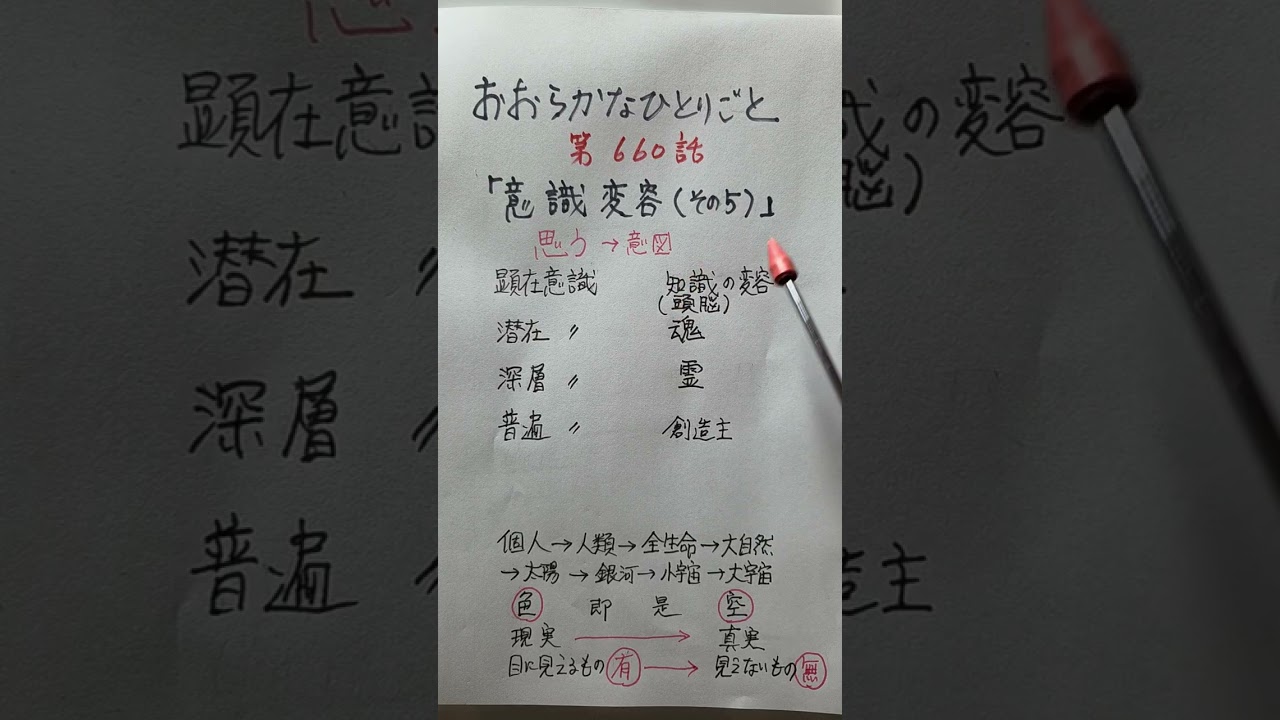 おおらかなひとりごと
第660話
「意識変容(その5)」
思う→意図
顕在意識 知識の変容
(頭脳)
潜在 〃 魂
深層 〃 霊
普遍 〃 創造主
個人→人類→全生命→大自然
→太陽→銀河→小宇宙→大宇宙
色即是空
現実→真実
目に見えるもの有→見えないもの無